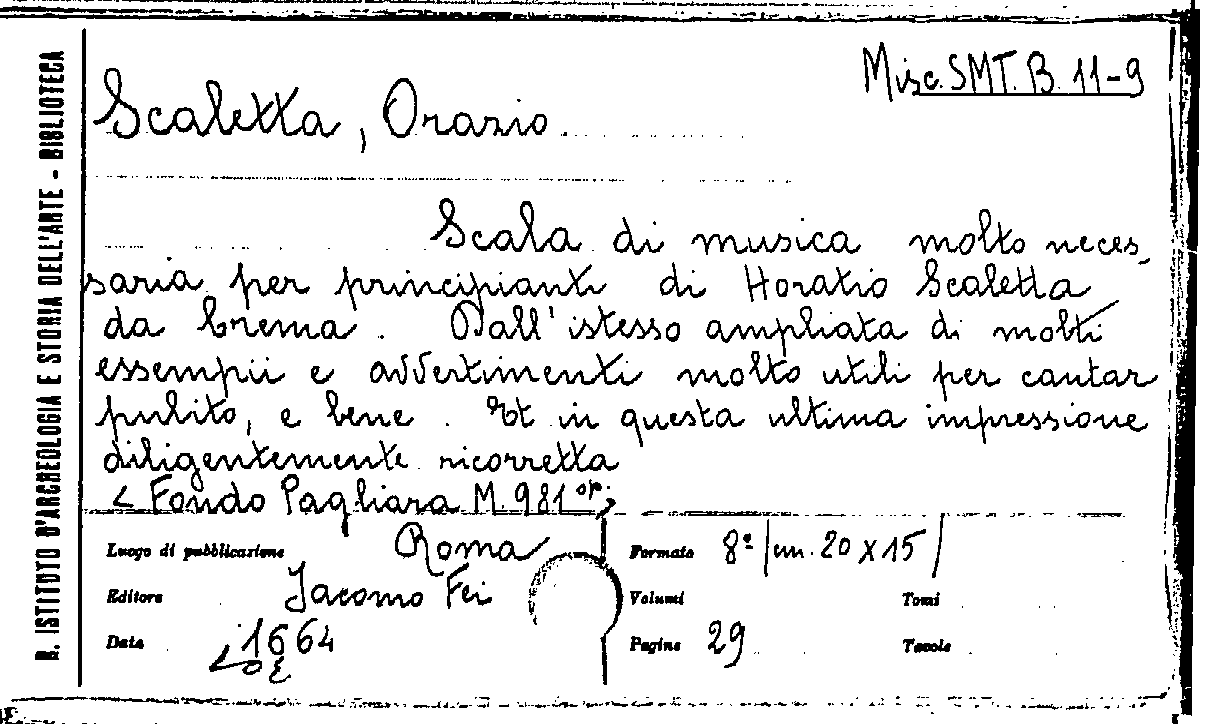 Misc. SMT. B. 11-9
Scaletta, Orazio
R. ISTITUTO D'ARCHEOLOGIA E STORIA DELL'ARTE - BIBLIOTECA
Scala di musica molto neces-
saria per principianti di Horatio Scaletta
da Crema. Dall'istesso ampliata di molti
essempii e avvertimenti molto utili per cantar
pulito, e bene. Et in questa ultima impressione
diligentemente ricorretta
< Fondo Pagliara M. 981 op. >
Luogo di pubblicazione Roma
Editore Jacomo Fei
Data 1664
Formato 8º /cm. 20 x 15/
Volumi Tomi
Pagine 29 Tavole